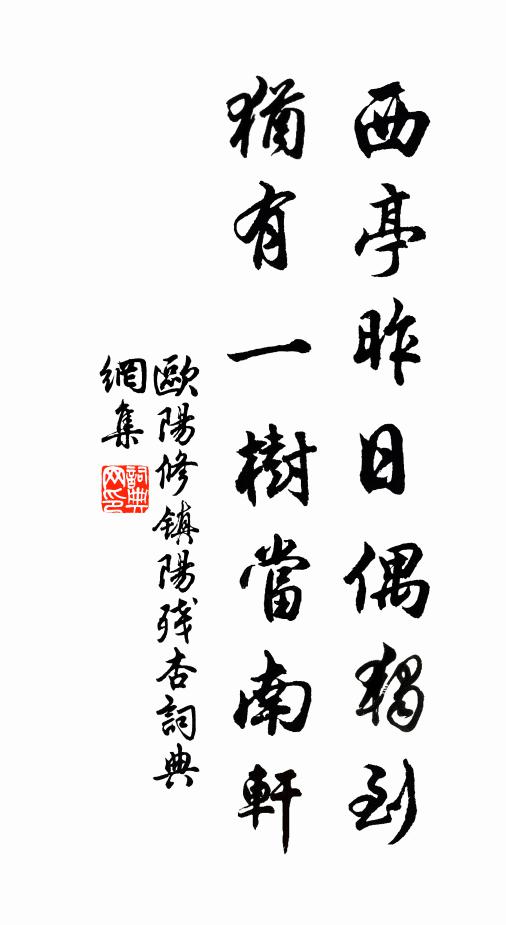 西亭昨日偶獨到
猶有一樹當南軒
歐陽修鎮陽殘杏詞典
網集
詞典
网印